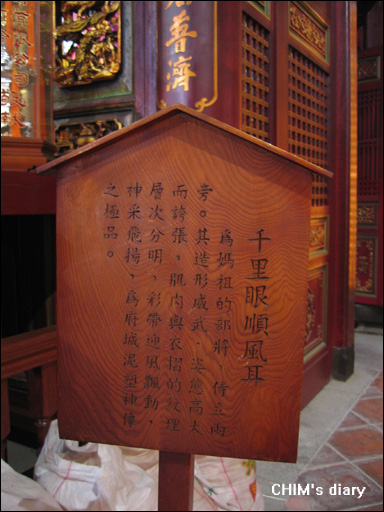 千里眼順風耳
為媽祖的部將，侍立兩
旁。其造形威武，姿態高大
而誇張，肌肉與衣褶的紋理
層次分明，彩帶迎風飄動，
神采飛揚，為府城泥塑神像
之極品。
普濟
CHIM's diary